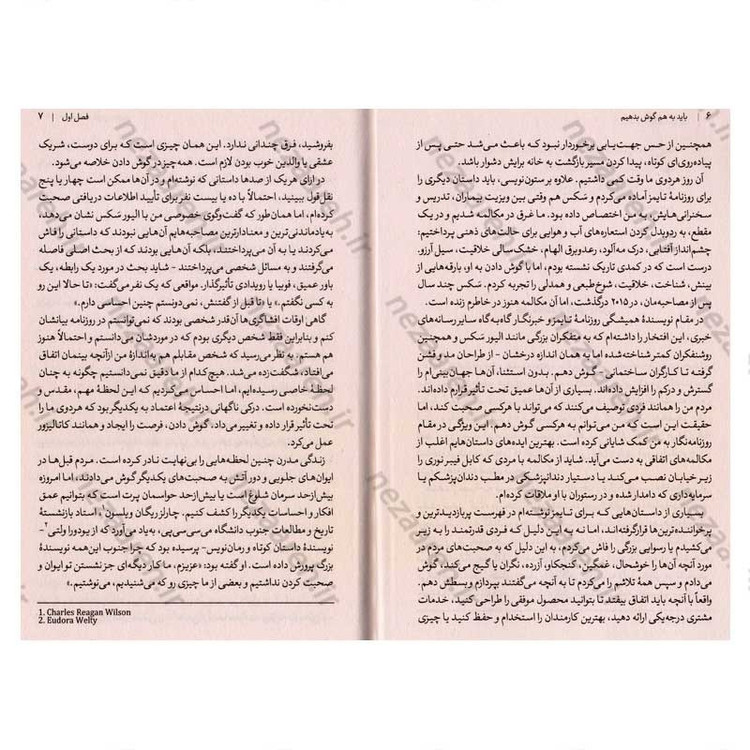 ۶ | باید به هم گوش بدهیم
همچنین از حس جهت‌یابی برخوردار نبود که باعث می‌شد حتی پس از
پیاده‌روی‌ای کوتاه، پیدا کردن مسیر بازگشت به خانه برایش دشوار باشد.
آن روز هردوی ما وقت کمی داشتیم. علاوه بر ستون‌نویسی، باید داستان دیگری را
برای روزنامهٔ تایمز آماده می‌کردم و سَکس هم وقتی بین ویزیت بیماران، تدریس و
سخنرانی‌هایش به من اختصاص داده بود. ما غرق در مکالمه شدیم و در یک
مقطع، به ردوبدل کردن استعاره‌های آب و هوایی برای حالت‌های ذهنی پرداختیم:
چشم‌انداز آفتابی، درک مه‌آلود، رعدوبرق الهام، خشک‌سالی خلاقیت، سیل آرزو.
درست است که در کمدی تاریک نشسته بودم، اما با گوش دادن به او، بارقه‌هایی از
بینش، شناخت، خلاقیت، شوخ‌طبعی و همدلی را تجربه کردم. سَکس چند سال
پس از مصاحبه‌مان، در ۲۰۱۵ درگذشت، اما آن مکالمه هنوز در خاطرم زنده است.
در مقام نویسندهٔ همیشگی روزنامهٔ تایمز و خبرنگار گاه‌به‌گاه سایر رسانه‌های
خبری، این افتخار را داشته‌ام که به متفکران بزرگی مانند الیور سَکس و همچنین
روشنفکران کمتر شناخته‌شده اما به همان اندازه درخشان - از طراحان مد و فشن
گرفته تا کارگران ساختمانی - گوش دهم. بدون استثنا، آن‌ها جهان‌بینی‌ام را
گسترش و درکم را افزایش داده‌اند. بسیاری از آن‌ها عمیق تحت تأثیر قرارم داده‌اند.
مردم من را همانند فردی توصیف می‌کنند که می‌تواند با هرکسی صحبت کند، اما
حقیقت این است که من می‌توانم به هرکسی گوش دهم. این ویژگی در مقام
روزنامه‌نگار به من کمک شایانی کرده است. بهترین ایده‌های داستان‌هایم اغلب از
مکالمه‌های اتفاقی به دست می‌آید. شاید از مکالمه با مردی که کابل فیبر نوری را
زیر خیابان نصب می‌کند یا دستیار دندانپزشکی در مطب دندان‌پزشکم یا
سرمایه‌داری که دامدار شده و در رستوران با او ملاقات کرده‌ام.
بسیاری از داستان‌هایی که برای تایمز نوشته‌ام در فهرست پربازدیدترین و
پرخواننده‌ترین‌ها قرار گرفته‌اند، اما نه به این دلیل که فردی قدرتمند را به زیر
می‌کشیدم یا رسوایی بزرگی را فاش می‌کردم، به این دلیل که به صحبت‌های مردم در
مورد آنچه آن‌ها را خوشحال، غمگین، کنجکاو، آزرده، نگران یا گیج می‌کند، گوش
می‌دادم و سپس همهٔ تلاشم را می‌کردم تا به آنچه می‌گفتند بپردازم و بسطش دهم.
واقعاً با آنچه باید اتفاق بیفتد تا بتوانید محصول موفقی را طراحی کنید، خدمات
مشتری درجه‌یکی ارائه دهید، بهترین کارمندان را استخدام و حفظ کنید یا چیزی
فصل اول | ۷
بفروشید، فرق چندانی ندارد. این همان چیزی است که برای دوست، شریک
عشقی یا والدین خوب بودن لازم است. همه‌چیز در گوش دادن خلاصه می‌شود.
در ازای هریک از صدها داستانی که نوشته‌ام و در آن‌ها ممکن است چهار یا پنج
نقل‌قول ببینید، احتمالاً با ده یا بیست نفر برای تأیید اطلاعات دریافتی صحبت
کرده‌ام، اما همان‌طور که گفت‌وگوی خصوصی من با الیور سَکس نشان می‌دهد،
به‌یادماندنی‌ترین و معنادارترین مصاحبه‌هایم آن‌هایی نبودند که داستانی را فاش
می‌کردند یا به آن می‌پرداختند، بلکه آن‌هایی بودند که از بحث اصلی فاصله
می‌گرفتند و به مسائل شخصی می‌پرداختند - شاید بحث در مورد یک رابطه، یک
باور عمیق، فوبیا یا رویدادی تأثیرگذار. مواقعی که یک نفر می‌گفت: «تا حالا این رو
به کسی نگفتم.» یا «تا قبل از گفتنش، نمی‌دونستم چنین احساسی دارم.»
گاهی اوقات افشاگری‌ها آن‌قدر شخصی بودند که نمی‌توانستم در روزنامه بیانشان
کنم و بنابراین فقط شخص دیگری بودم که در موردشان می‌دانستم و احتمالاً هنوز
هم هستم. به نظر می‌رسید که شخص مقابلم هم به‌اندازهٔ من از آنچه بینمان اتفاق
می‌افتاد، شگفت‌زده می‌شد. هیچ‌کدام از ما دقیق نمی‌دانستیم چگونه به چنان
لحظهٔ خاصی رسیده‌ایم، اما احساس می‌کردیم که این لحظهٔ مهم، مقدس و
دست‌نخورده است. درکی ناگهانی درنتیجهٔ اعتماد به یکدیگر بود که هردوی ما را
تحت تأثیر قرار داده و تغییر می‌داد، گوش دادن، فرصت را ایجاد و همانند کاتالیزور
عمل می‌کرد.
زندگی مدرن چنین لحظه‌هایی را بی‌نهایت نادر کرده است. مردم قبل‌ها در
ایوان‌های جلویی و دور آتش به صحبت‌های یکدیگر گوش می‌دادند، اما امروزه
بیش‌ازحد سرمان شلوغ است یا بیش‌ازحد حواسمان پرت است که بتوانیم عمق
افکار و احساسات یکدیگر را کشف کنیم. چارلز ریگان ویلسون۱، استاد بازنشستهٔ
تاریخ و مطالعات جنوب دانشگاه می‌سی‌سی‌پی، به‌یاد می‌آورد که از یودورا ولتی۲-
نویسندهٔ داستان کوتاه و رمان‌نویس- پرسیده بود که چرا جنوب این‌همه نویسندهٔ
بزرگ پرورش داده است. او گفته بود: «عزیزم، ما کار دیگه‌ای جز نشستن تو ایوان و
صحبت کردن نداشتیم و بعضی از ما چیزی رو که می‌شنیدیم، می‌نوشتیم.»
1. Charles Reagan Wilson
2. Eudora Welty